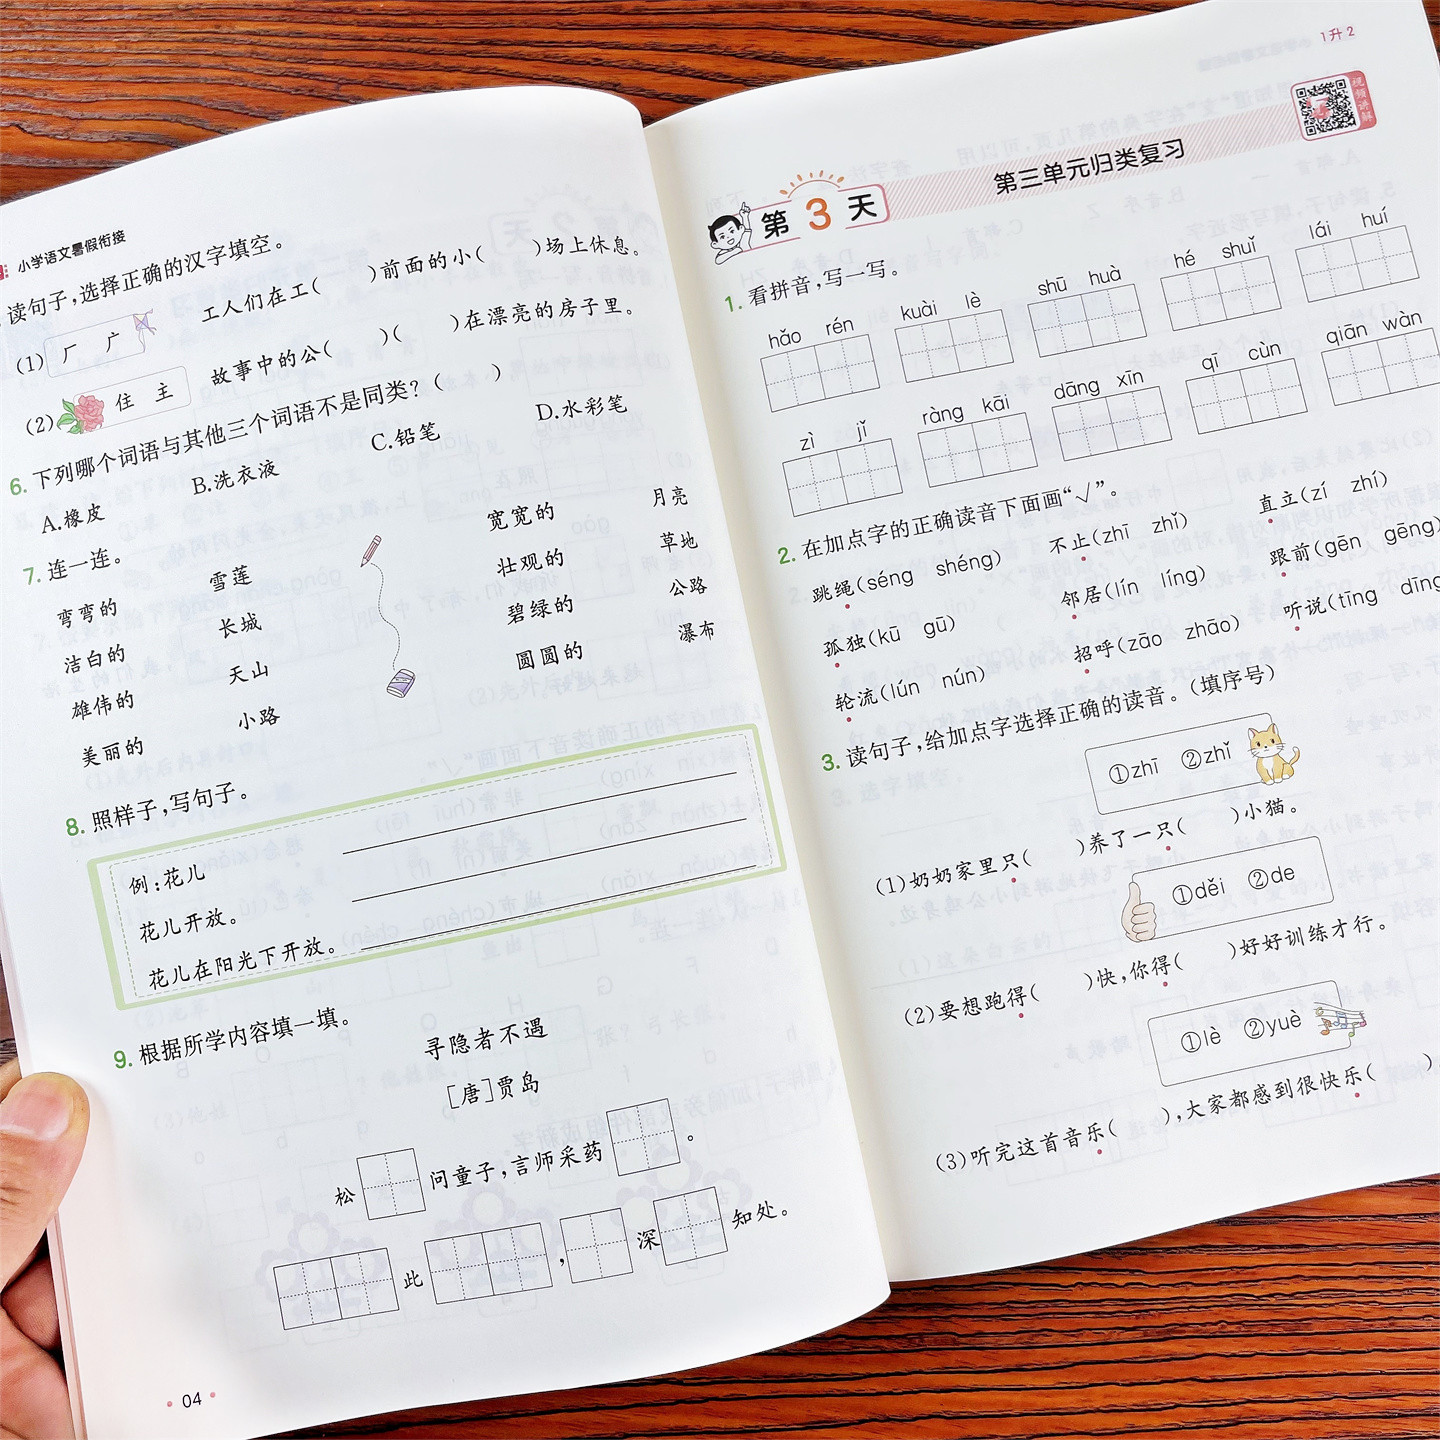 小学语文暑假衔接
读句子,选择正确的汉字填空。
(1) 厂 广 工人们在工( )前面的小( )场上休息。
(2) 住 主 故事中的公( )( )在漂亮的房子里。
6. 下列哪个词语与其他三个词语不是同类?( )
A.橡皮 B.洗衣液 C.铅笔 D.水彩笔
7. 连一连。
弯弯的 雪莲 宽宽的 月亮
洁白的 长城 壮观的 草地
雄伟的 天山 碧绿的 公路
美丽的 小路 圆圆的 瀑布
8. 照样子,写句子。
例:花儿
花儿开放。
花儿在阳光下开放。
9. 根据所学内容填一填。
寻隐者不遇
[唐]贾岛
松 问童子,言师采药 。
此 , 深 知处。
04
1升2
视频讲解
第3天 第三单元归类复习
1. 看拼音,写一写。
hǎo rén kuài lè shū huà hé shuǐ lái huí
zì jǐ ràng kāi dāng xīn qī cùn qiān wàn
2. 在加点字的正确读音下面画“√”。
跳绳(séng shéng) 不止(zhī zhǐ) 直立(zí zhí)
孤独(kū gū) 邻居(lín líng) 跟前(gēn gēng)
轮流(lún nún) 招呼(zāo zhāo) 听说(tīng dīng
3. 读句子,给加点字选择正确的读音。(填序号)
①zhī ②zhǐ
(1)奶奶家里只( )养了一只( )小猫。
①děi ②de
(2)要想跑得( )快,你得( )好好训练才行。
①lè ②yuè
(3)听完这首音乐( ),大家都感到很快乐( )